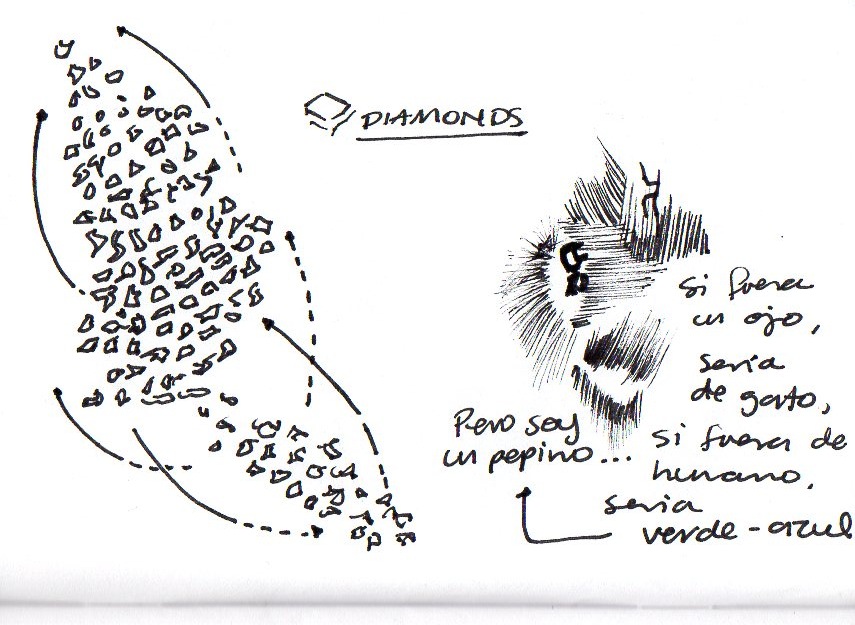 DIAMONDS
si fuera
un ojo,
seria
de gato,
si fuera de
humano,
seria
verde-azul
Pero soy
un pepino...